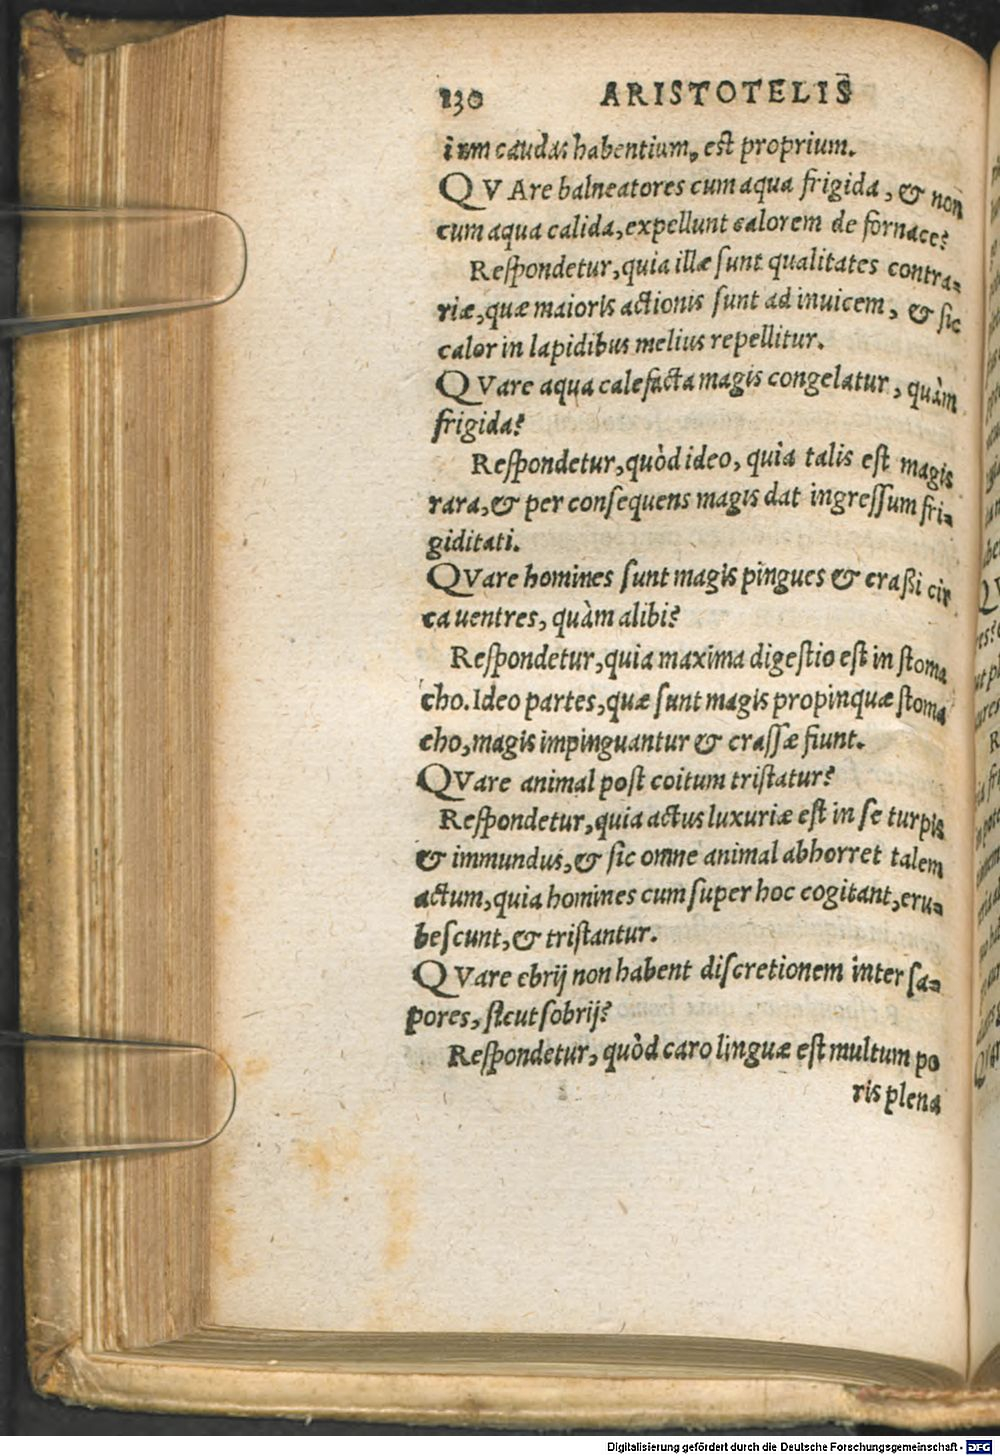 130 ARISTOTELIS
ium caudas habentium, est proprium.
QVAre balneatores cum aqua frigida, & non
cum aqua calida, expellunt calorem de fornace?
Respondetur, quia illæ sunt qualitates contra-
riæ, quæ maioris actionis sunt ad inuicem, & sic
calor in lapidibus melius repellitur.
QVare aqua calefacta magis congelatur, quàm
frigida?
Respondetur, quòd ideo, quia talis est magis
rara, & per consequens magis dat ingressum fri-
giditati.
QVare homines sunt magis pingues & crassi cir
ca uentres, quàm alibi?
Respondetur, quia maxima digestio est in stoma
cho. Ideo partes, quæ sunt magis propinquæ stoma
cho, magis impinguantur & crassæ fiunt.
QVare animal post coitum tristatur?
Respondetur, quia actus luxuriæ est in se turpis
& immundus, & sic omne animal abhorret talem
actum, quia homines cum super hoc cogitant, eru-
bescunt, & tristantur.
QVare ebrij non habent discretionem inter sa-
pores, sicut sobrij?
Respondetur, quòd caro linguæ est multum po
ris plena
Digitalisierung gefördert durch die Deutsche Forschungsgemeinschaft - DFG